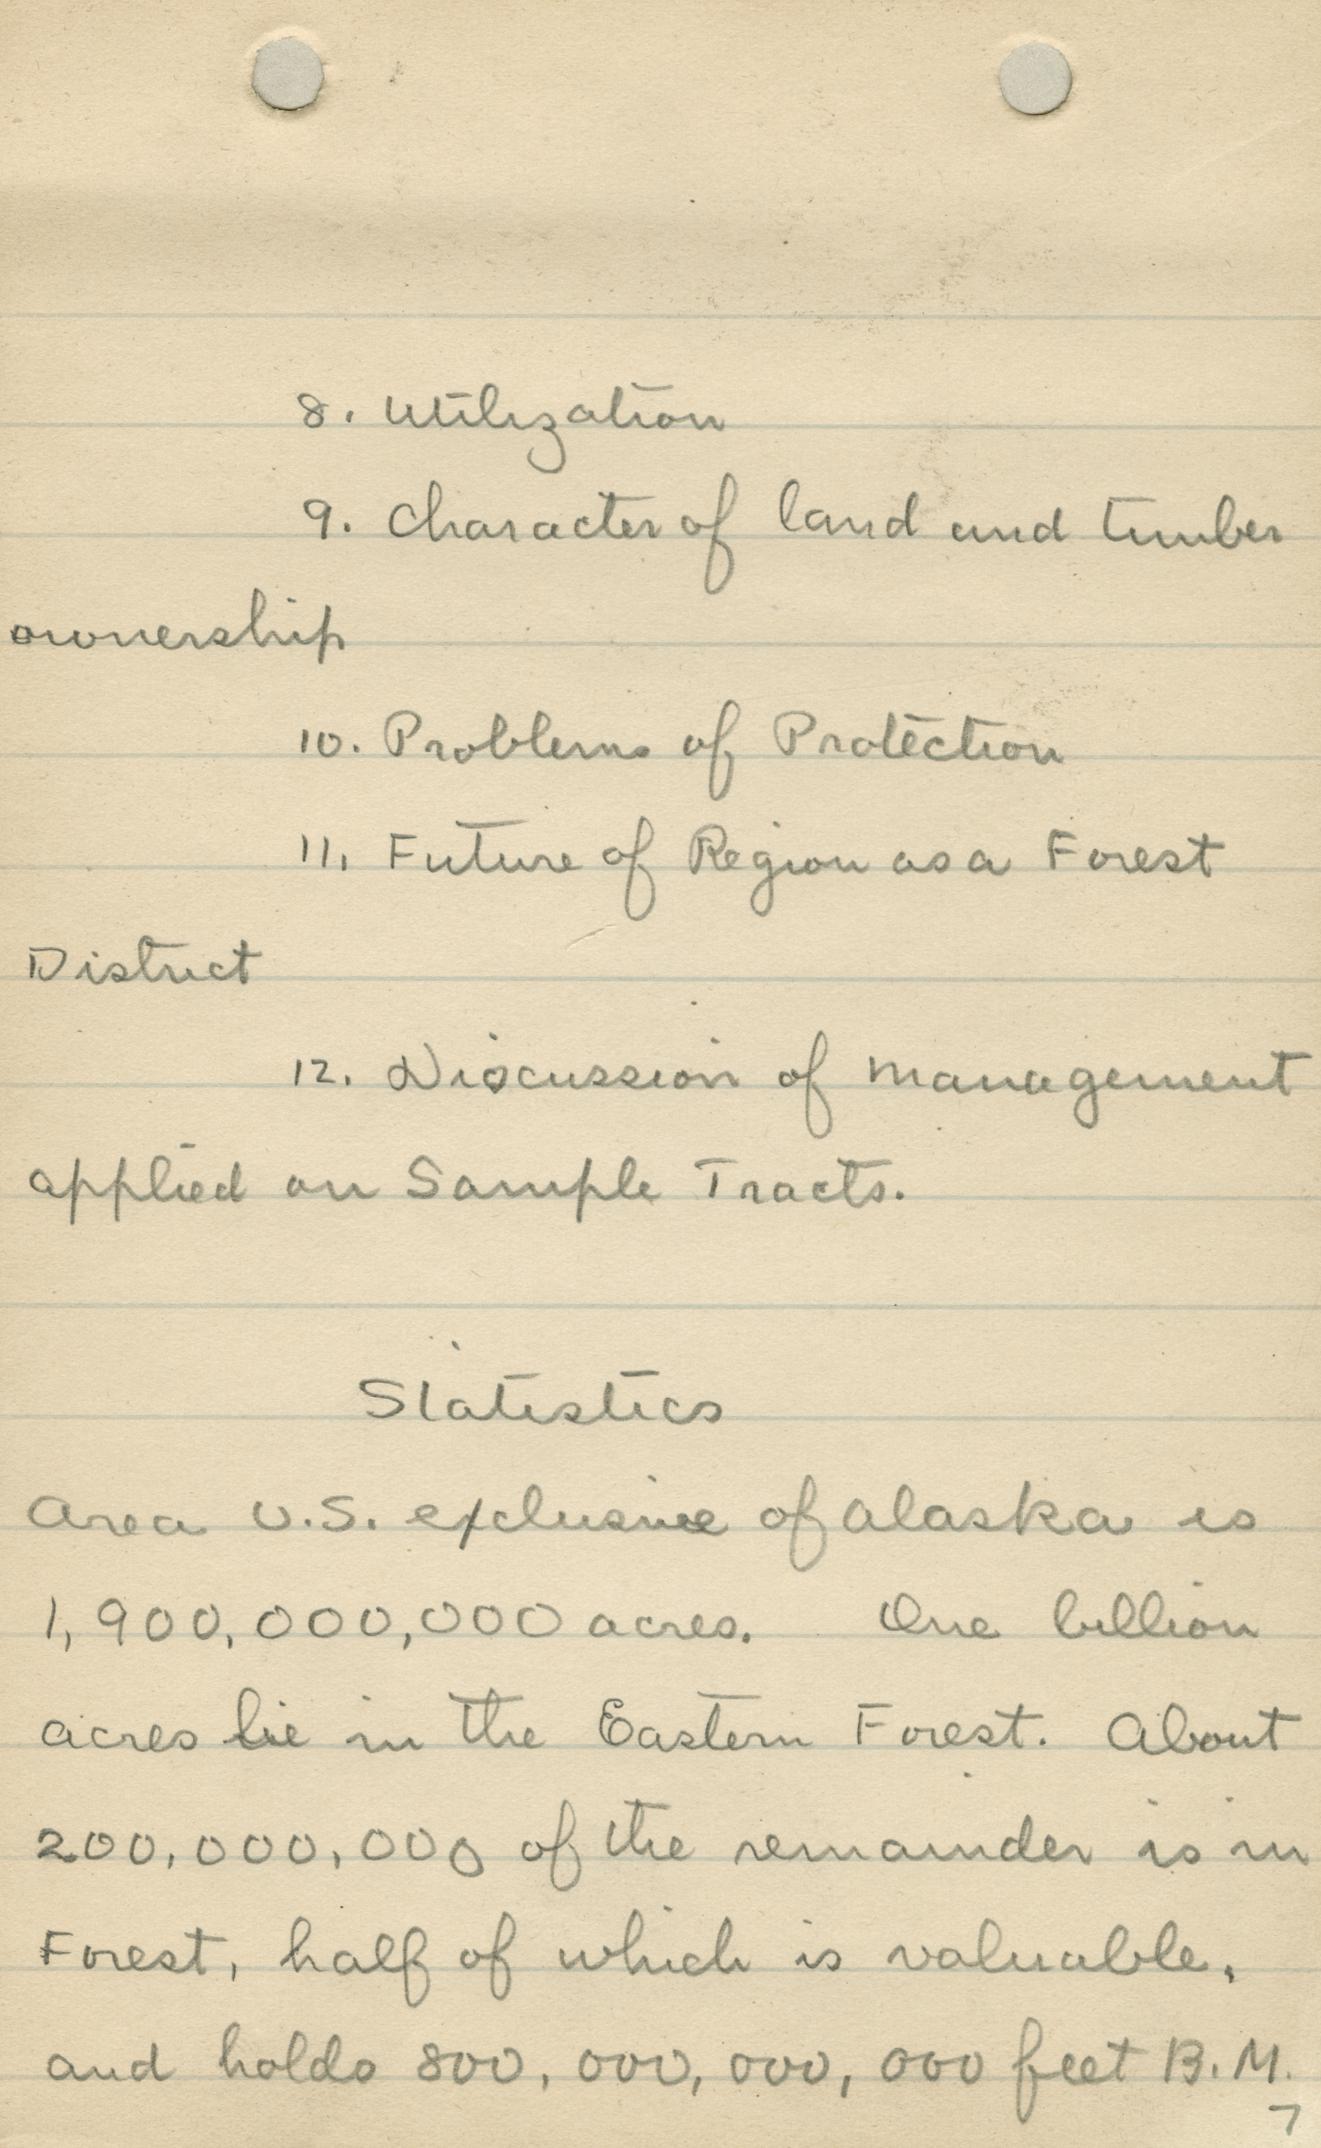 8. Utilization
9. Character of land and timber
ownership
10. Problems of Protection
11. Future of Region as a Forest
District
12. Discussion of management
applied on Sample Tracts.
Statistics
Area U.S. exclusive of Alaska is
1,900,000,000 acres. One billion
acres lie in the Eastern Forest. About
200,000,000 of the remainder is in
Forest, half of which is valuable,
and holds 800,000,000,000 feet B.M.
7